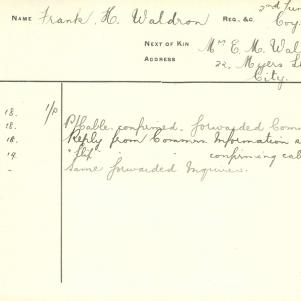 2nd Tun
NAME Frank. H. Waldron REG. &C. Coy.
NEXT OF KIN Mrs E. M. Wal
ADDRESS 22, Myers St
City.
18. 1/P
18. P/Cable. confirmed. forwarded Comm
18. Reply from Commrs. Information a
19. " " " confirming cab
- Same forwarded Inquirer.